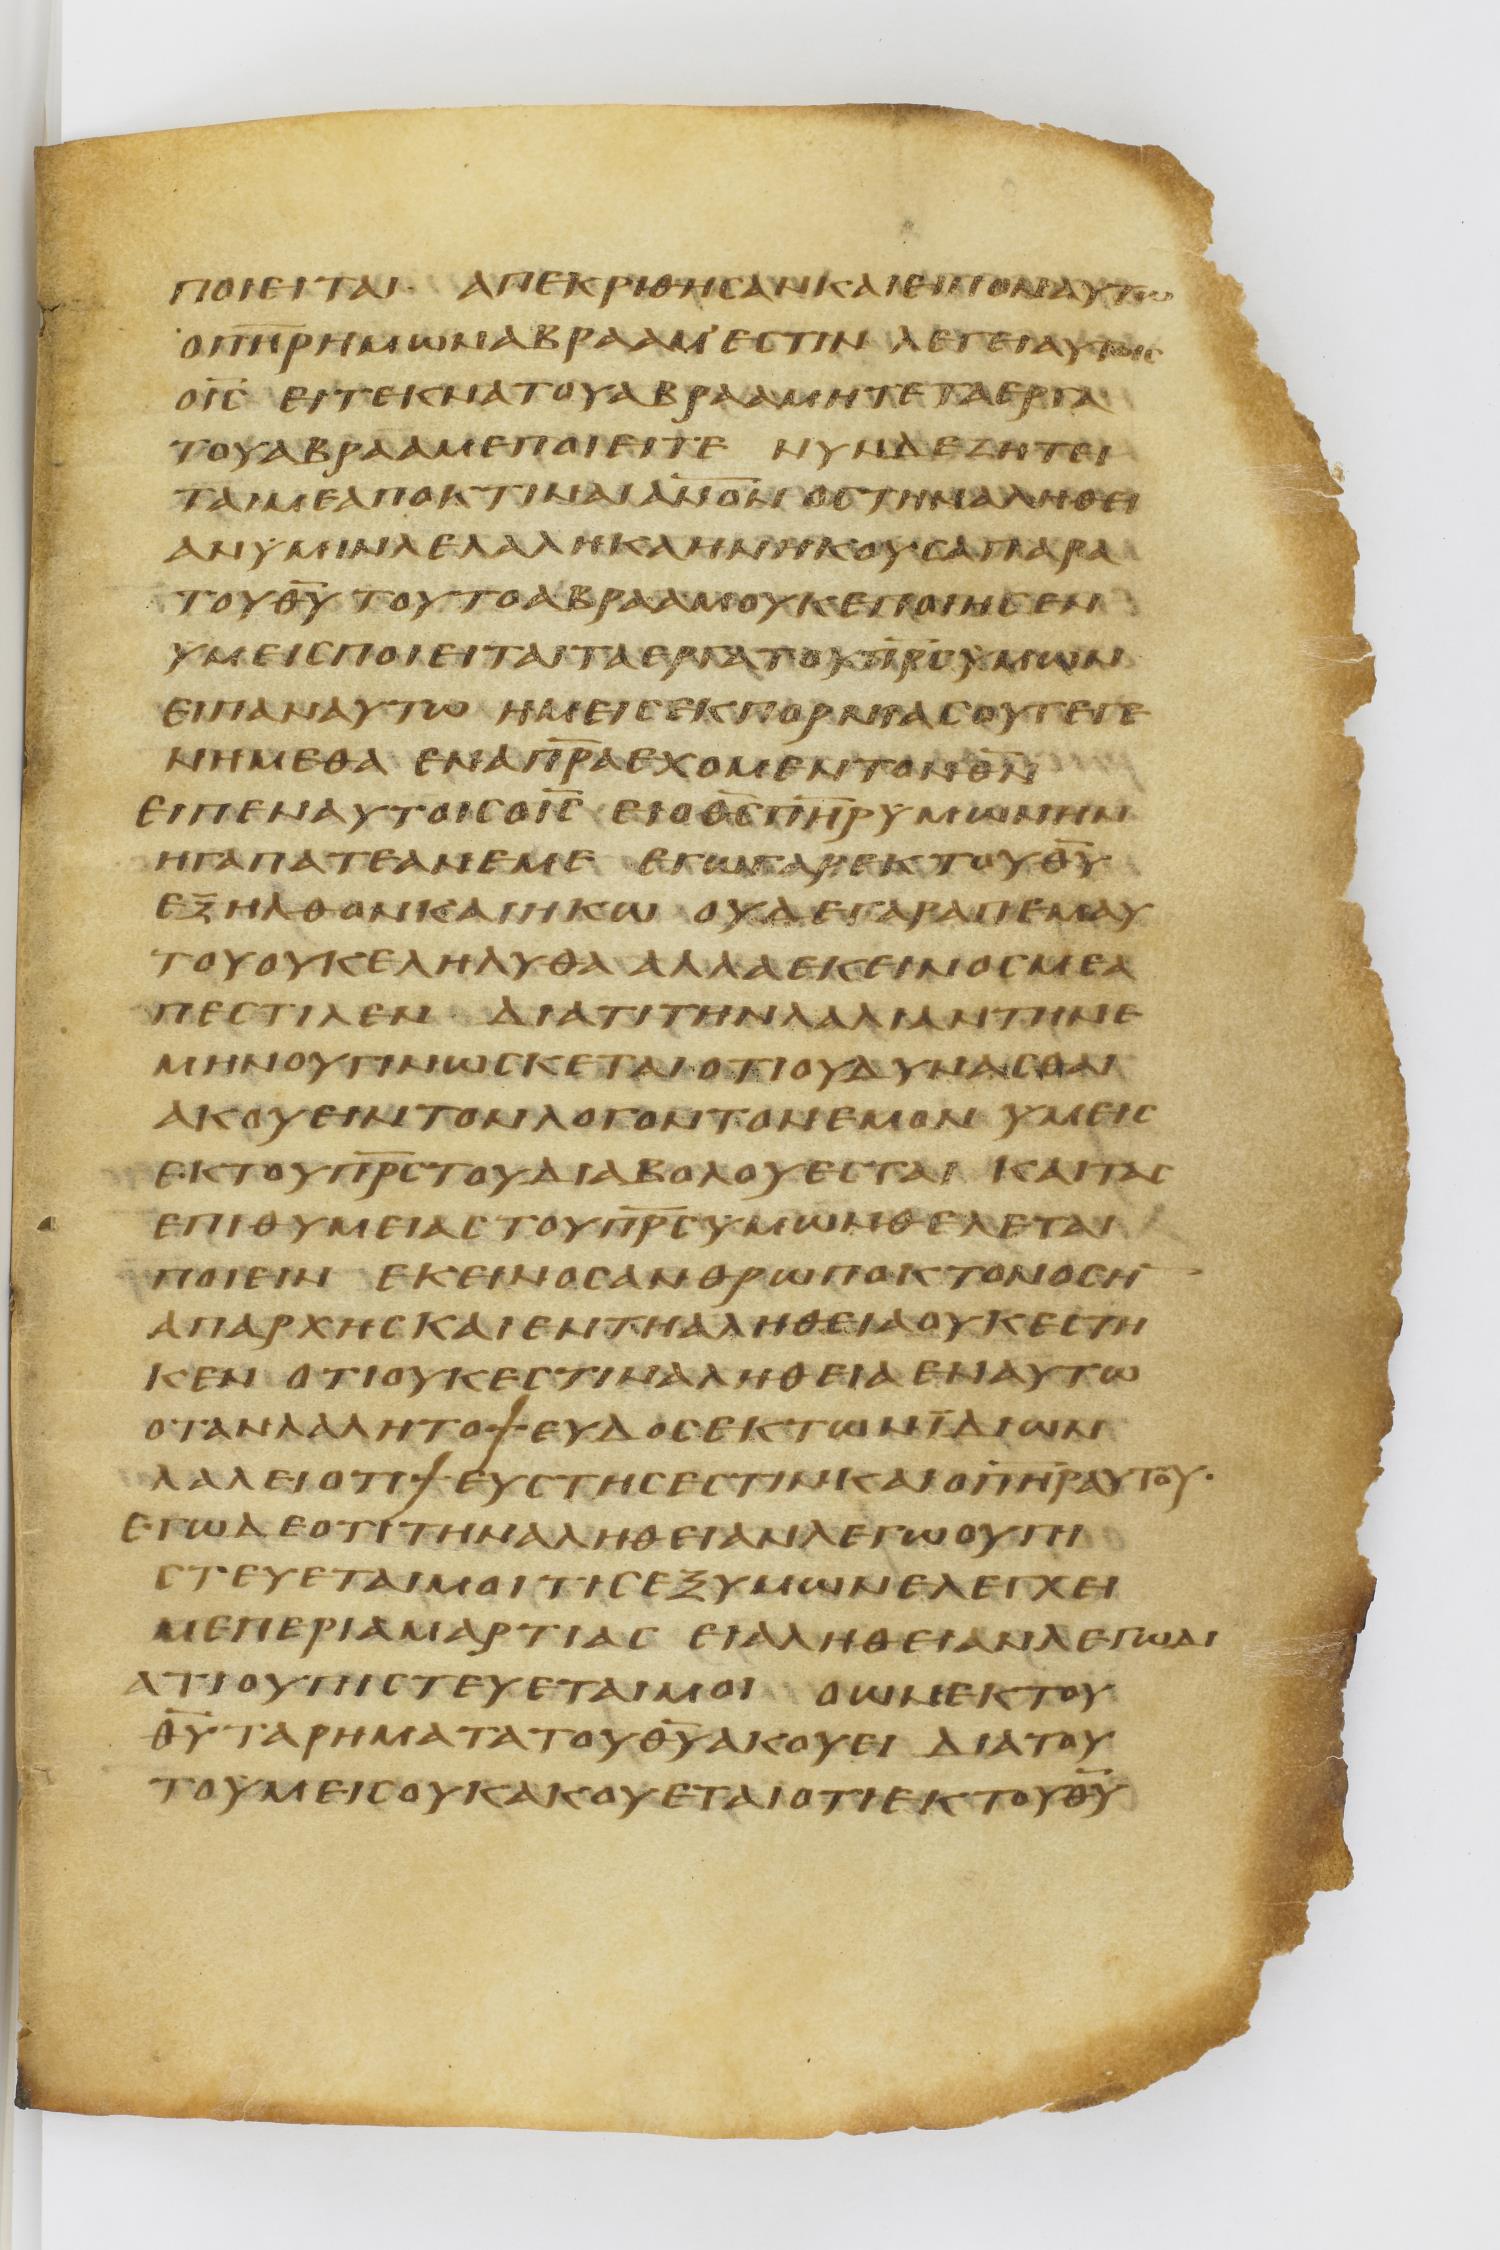 ποιειται απεκριθησανκαιειποναυτω
οπ̅η̅ρ̅ημωναβρααμ'εστιν λεγειαυτοις
οι̅σ̅ ειτεκνατουαβρααμητεταεργα
τουαβρααμεποιειτε νυνδεζητει
ταιμεαποκτιναια̅ν̅ο̅ν̅οστηναληθει
ανυμινλελαληκαηνηκουσαπαρα
τουθ̅υ̅ τουτοαβρααμουκεποιησεν
υμεισποιειταιταεργατουπ̅ρ̅σ̅υμων
ειπαναυτω ημεισεκπορνιασουγεγε
νημεθα εναπ̅ρ̅α̅εχομεντονθ̅ν̅
ειπεναυτοισοι̅σ̅ ειοθ̅σ̅π̅η̅ρ̅υμωνην
ηγαπατεανεμε εγωγαρεκτουθ̅υ̅
εξηλθονκαιηκω ουδεγαραπεμαυ
τουουκεληλυθα αλλαεκεινοσμεα
πεστιλεν διατιτηνλαλιαντηνε
μηνουγινωσκεται οτιουδυνασθαι
ακουειντονλογοντονεμον υμεισ
εκτουπ̅ρ̅σ̅τουδιαβολουεσται καιτασ
επιθυμειαστουπ̅ρ̅σ̅υμωνθελεται
ποιειν εκεινοσανθρωποκτονοση̅
απαρχησκαιεντηαληθειαουκεστη
κεν οτιουκεστιναληθειαεναυτω
οτανλαλητοψευδοσεκτωνϊδιων
λαλειοτιψευστησεστινκαιοπ̅η̅ρ̅αυτου·
εγωδεοτιτηναληθειανλεγωουπι
στευεταιμοιτισεξυμωνελεγχει
μεπεριαμαρτιασ ειαληθειανλεγωδι
ατιουπιστευεταιμοι οωνεκτου
θ̅υ̅ταρηματατουθ̅υ̅ακουει διατου
τουμεισουκακουεταιοτιεκτουθ̅υ̅